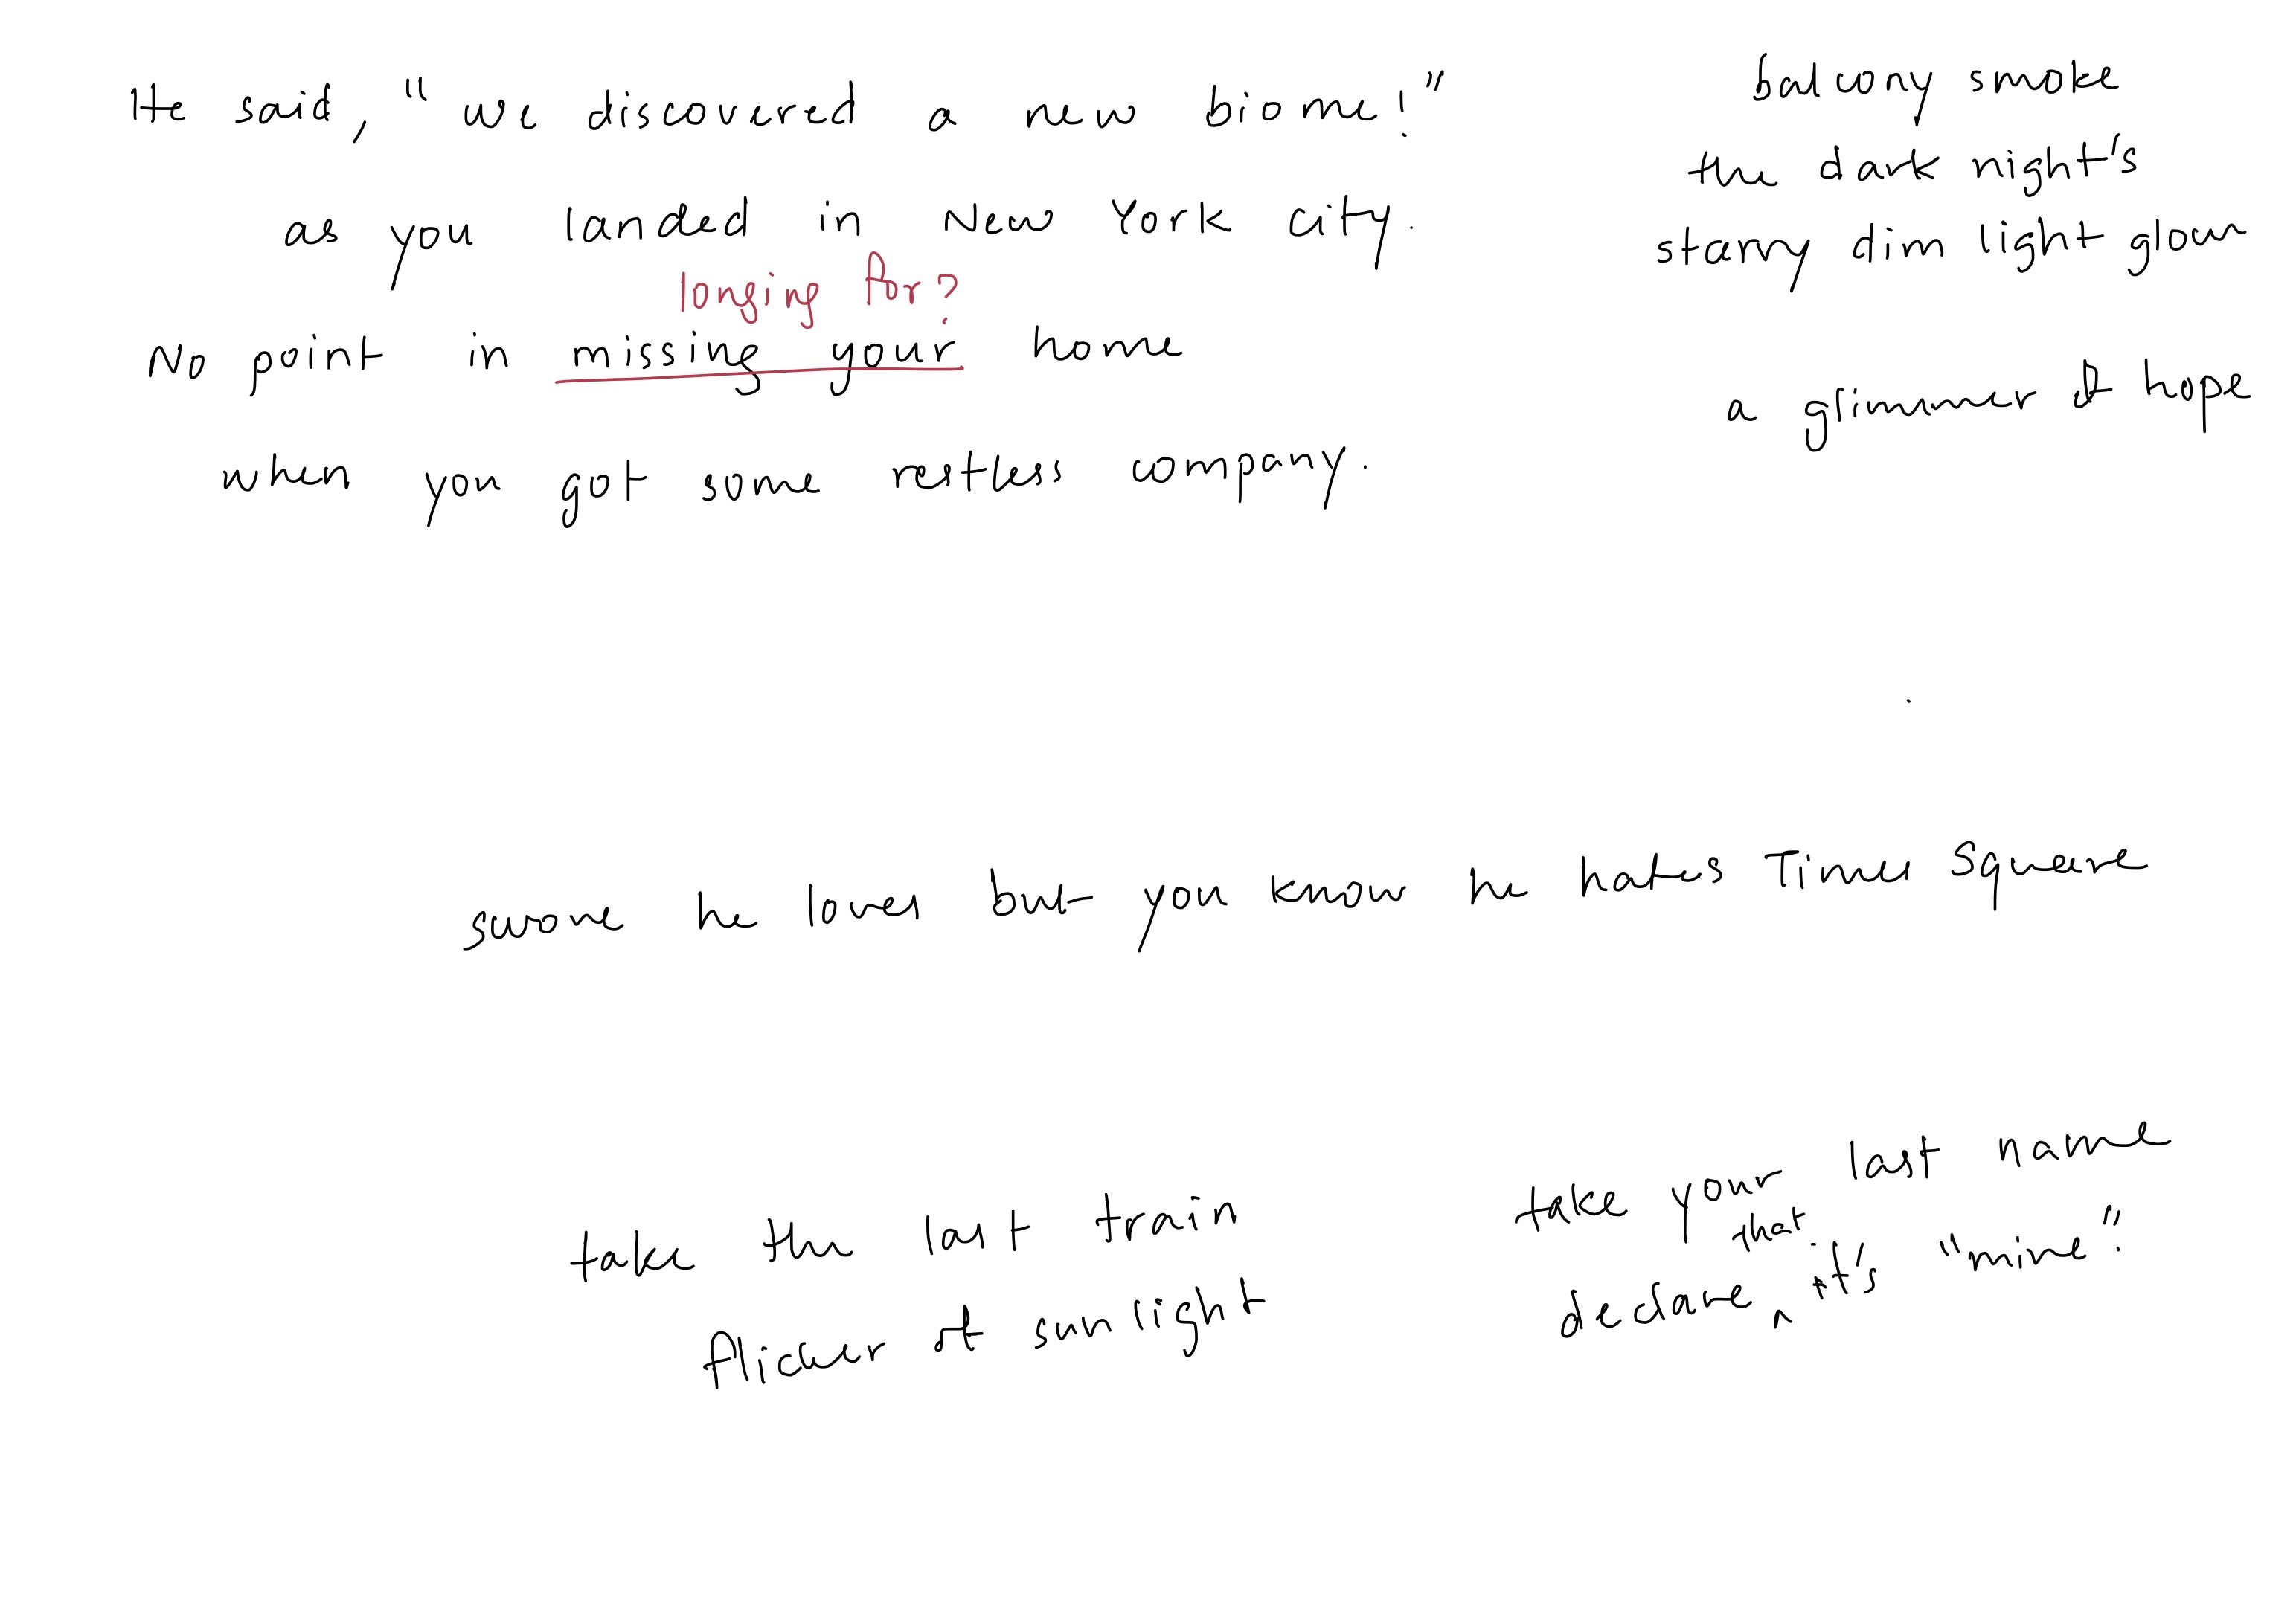 He said, "we discovered a new biome!"
as you landed in New York City.
longing for?
No point in missing your home
when you got some restless company.
balcony smoke
the dark night's
starry dim light glow
a glimmer of hope
swore he loves but you know he hates Times Square
take the last train
flicker of sunlight
take your last name
that
declare it's "mine".